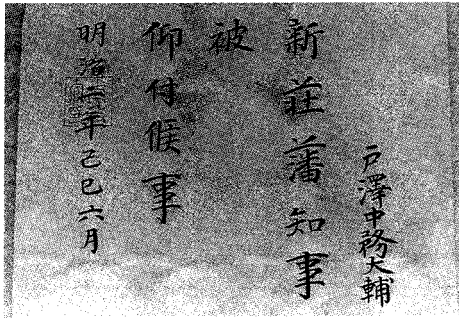 戸澤中務大輔
新莊藩知事
被
仰付候事
明治二年己巳六月